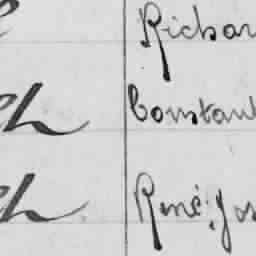 Richar
ch Constant
ch René, Jos